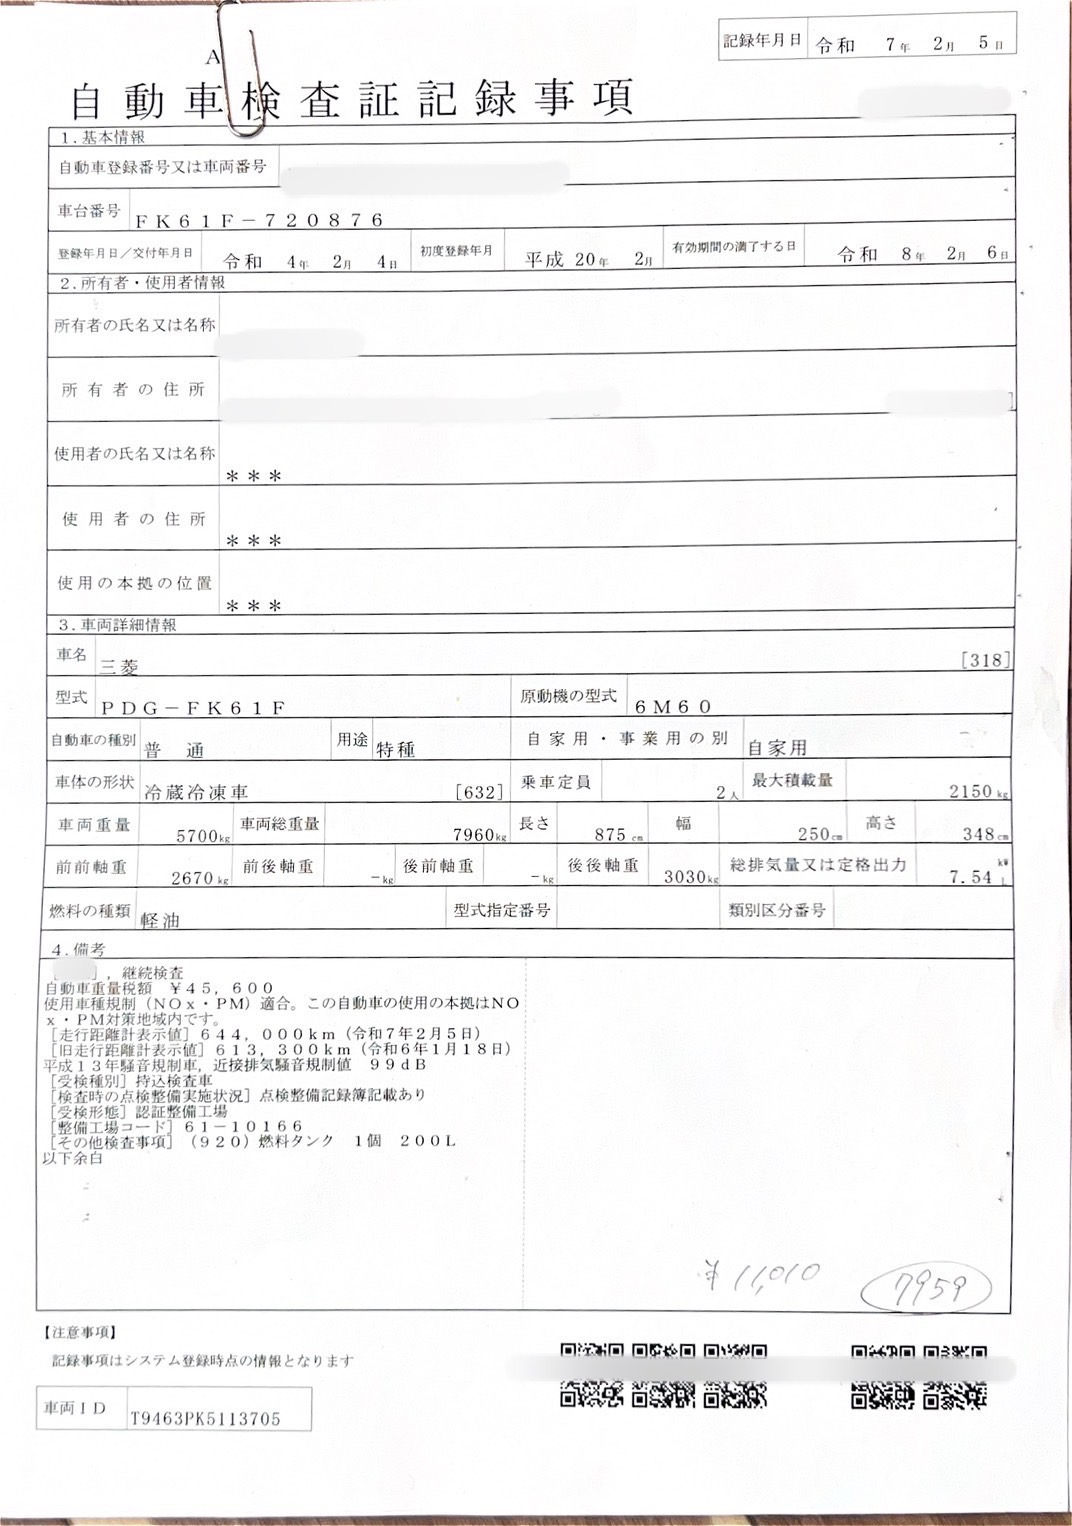 記録年月日 令和 7年 2月 5日
A
自動車検査証記録事項
1.基本情報
自動車登録番号又は車両番号
車台番号 FK61F-720876
登録年月日/交付年月日 令和 4年 2月 4日 初度登録年月 平成 20年 2月 有効期間の満了する日 令和 8年 2月 6日
2.所有者・使用者情報
所有者の氏名又は名称
所有者の住所
使用者の氏名又は名称 ***
使用者の住所 ***
使用の本拠の位置 ***
3.車両詳細情報
車名 三菱 [318]
型式 PDG-FK61F 原動機の型式 6M60
自動車の種別 普通 用途 特種 自家用・事業用の別 自家用
車体の形状 冷蔵冷凍車 [632] 乗車定員 2人 最大積載量 2150kg
車両重量 5700kg 車両総重量 7960kg 長さ 875cm 幅 250cm 高さ 348cm
前前軸重 2670kg 前後軸重 -kg 後前軸重 -kg 後後軸重 3030kg 総排気量又は定格出力 7.54 kW L
燃料の種類 軽油 型式指定番号 類別区分番号
4.備考
[ ],継続検査
自動車重量税額 ¥45,600
使用車種規制(NOx・PM)適合。この自動車の使用の本拠はNO
x・PM対策地域内です。
[走行距離計表示値]644,000km(令和7年2月5日)
[旧走行距離計表示値]613,300km(令和6年1月18日)
平成13年騒音規制車,近接排気騒音規制値 99dB
[受検種別]持込検査車
[検査時の点検整備実施状況]点検整備記録簿記載あり
[受検形態]認証整備工場
[整備工場コード]61-10166
[その他検査事項](920)燃料タンク 1個 200L
以下余白
¥11,010 7959
【注意事項】
記録事項はシステム登録時点の情報となります
車両ID T9463PK5113705